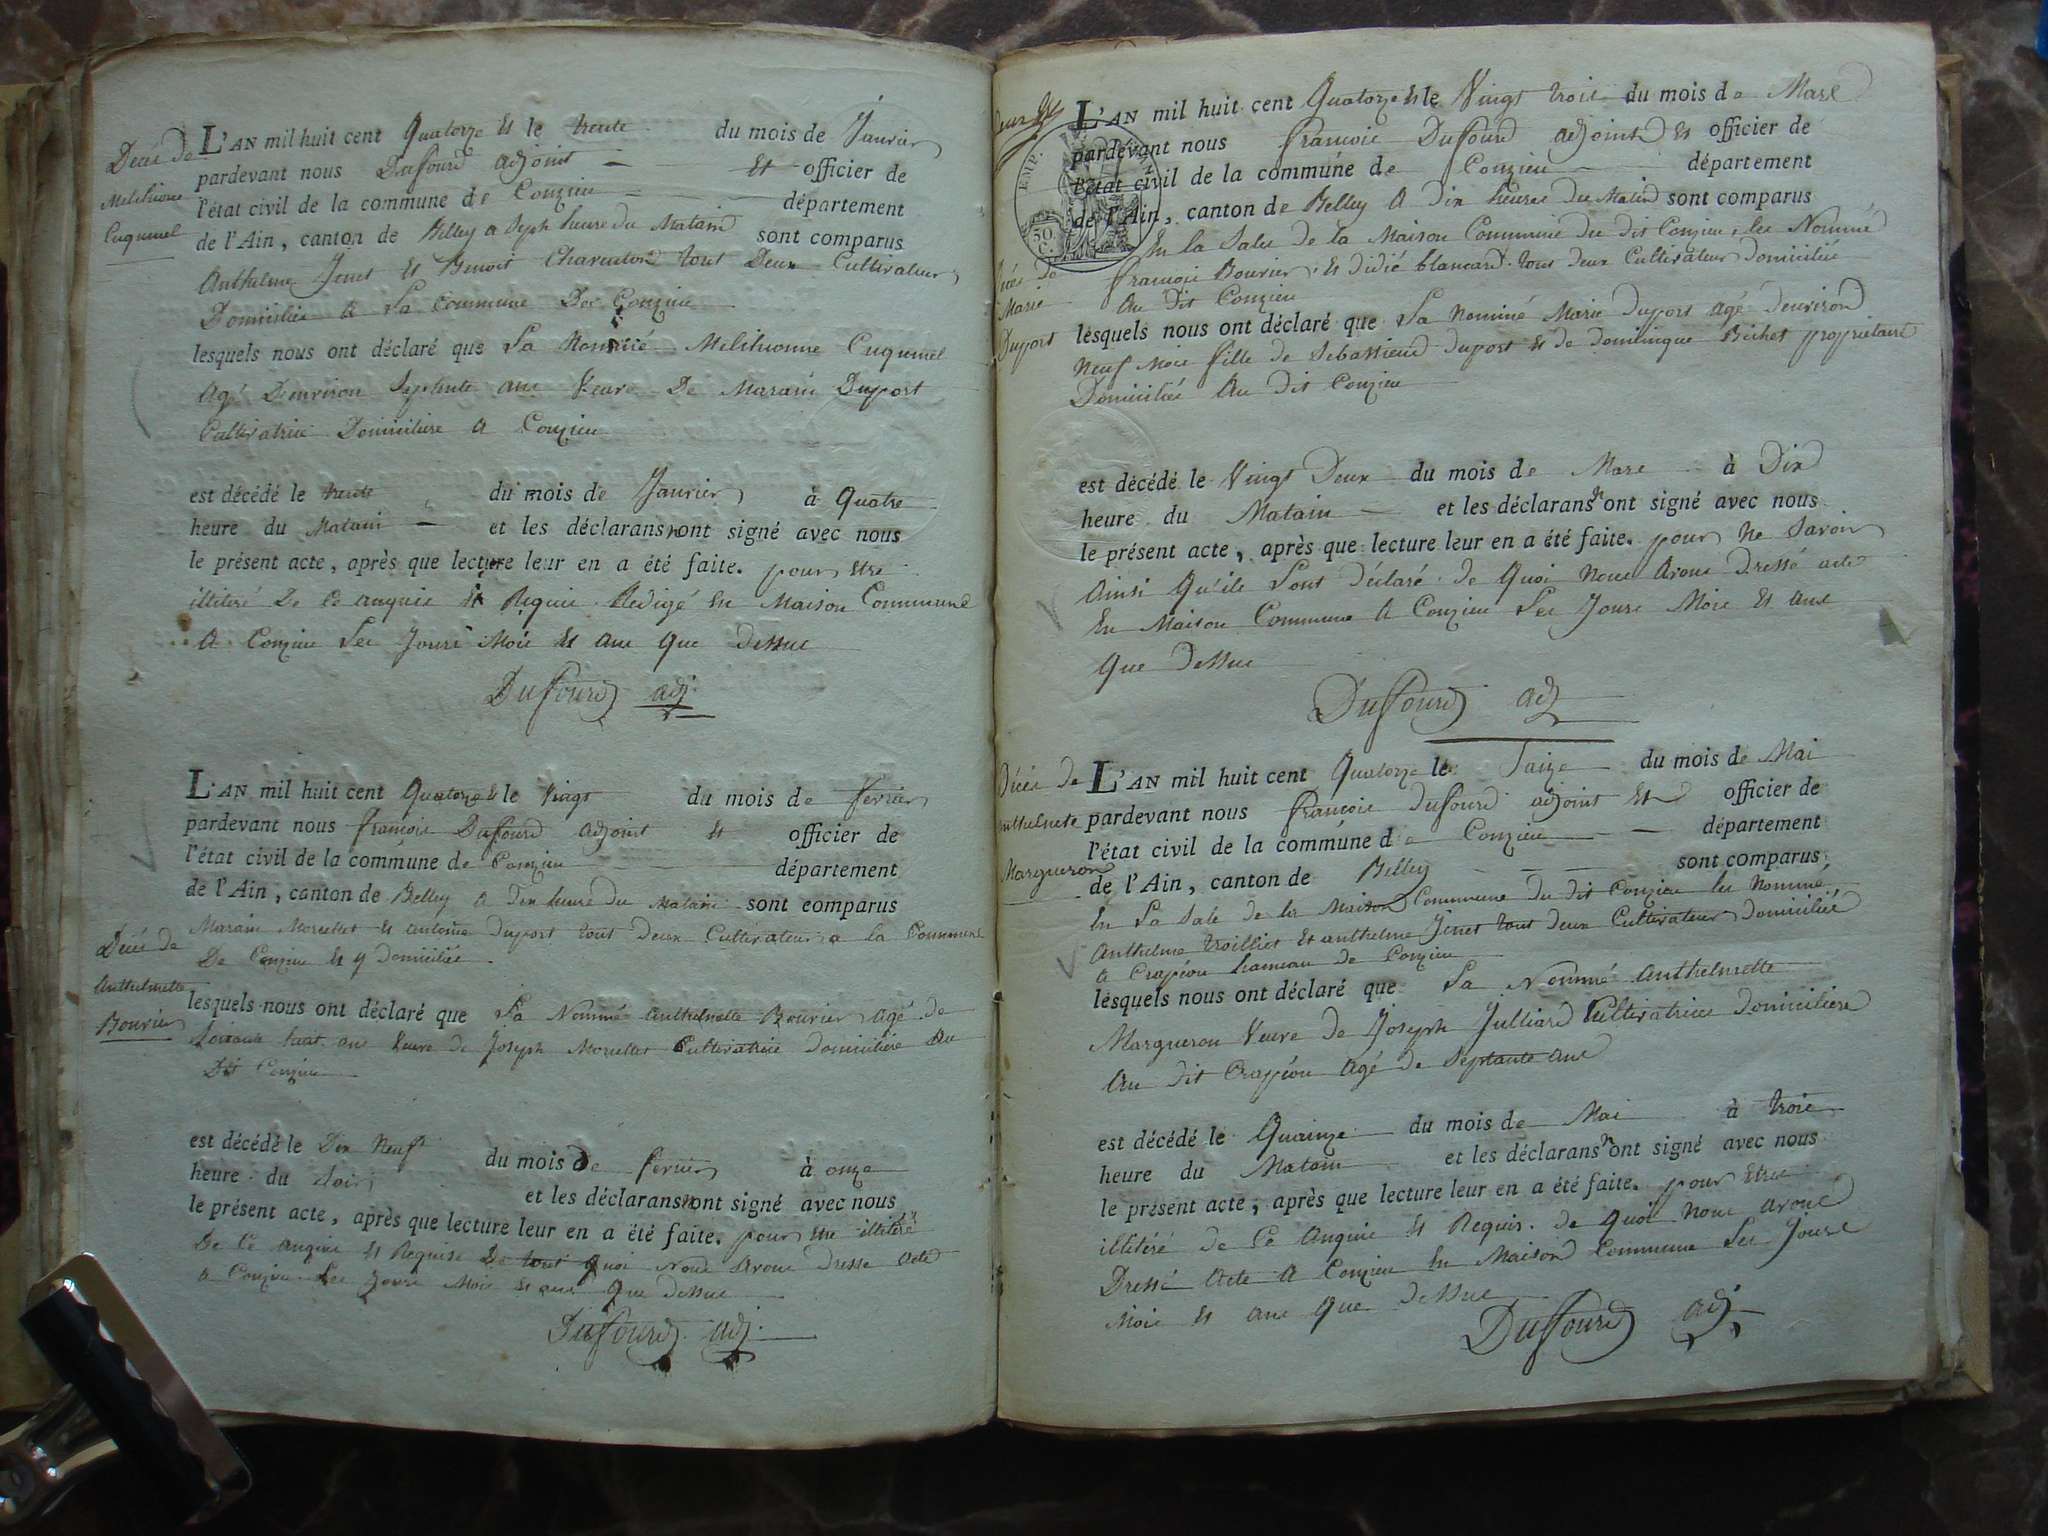 Décès de
Melchionne
Cuquenel
L'AN mil huit cent Quatorze Et le trente du mois de Janvier
pardevant nous Duffourd adjoint Et officier de
l'état civil de la commune de Conzieu département
de l'Ain, canton de Belley a Seph heure du Matain sont comparus
Anthelme Jenet Et Benoit Charveton tout Deux Cultivateur
Domicilier a La commune De Conzieu
lesquels nous ont déclaré que La Nommé
Agé Denviron Septente ans Veuve De Marain Duport
Cultivatrice Domiciliere a Conzieu
est décédé le trente du mois de Janvier à Quatre
heure du Matain et les déclarans n ont signé avec nous
le présent acte, après que lecture leur en a été faite. pour Etre
illiteré De Ce anquie Et Requie. Redigé En Maison Commune
A Conzieu Les Jours Mois Et ans que dessus
Duffourd adj.
L'AN mil huit cent Quatorze Et le Vingt du mois de fevrier
pardevant nous françois Duffourd adjoint Et officier de
l'état civil de la commune de Conzieu département
de l'Ain, canton de Belley a Dix heure du Matain sont comparus
Marain Morellet Et antoine Duport tout Deux Cultivateur a La Commune
De Conzieu Et y domiciliés
Décès de
Anthelmette
Bouvier
lesquels nous ont déclaré que La Nommé Anthelmette Bouvier Agé de
Soixante huit ans Veuve de Joseph Morellet Cultivatrice domiciliere Au
Dit Conzieu
est décédé le Dix Neuf du mois de fevrier à onze
heure du Soir et les déclarans n ont signé avec nous
le présent acte, après que lecture leur en a été faite. pour etre illiteré
De Ce anquie Et Requise De tout Quoi Nous Avons Dresse Acte
A Conzieu Les Jours Mois Et ans Que Dessus
Duffourd adj.
EMP.
50
C.
L'AN mil huit cent Quatorze Et le Vingt trois du mois de Mars
pardevant nous françois Duffourd adjoint Et officier de
l'état civil de la commune de Conzieu département
de l'Ain, canton de Belley A Dix heures Du Matin sont comparus
En la Sales de la Maison Commune du dit Conzieu, les Nommé
françois Bouvier, Et didié blancard tous deux Cultivateur Domiciliés
Au Dit Conzieu
Marie
Duport
lesquels nous ont déclaré que La Nommé Marie Duport agé denviron
Neuf Mois fille de Sebastiend duport Et de dominique Bichet propriétaire
Domiciliés Au dit Conzieu
est décédé le Vingt Deux du mois de Mars à Dix
heure du Matain et les déclarans n ont signé avec nous
le présent acte, après que lecture leur en a été faite. pour Ne Savoir
Ainsi Qu'ils Sont déclaré de Quoi Nous Avons Dressé acte
En Maison Commune A Conzieu Les Jours Mois Et ans
Que Dessus
Duffourd adj
Décès de
Anthelmete
Margueron
L'AN mil huit cent Quatorze le Saize du mois de Mai
pardevant nous françois duffourd adjoint Et officier de
l'état civil de la commune de Conzieu département
de l'Ain, canton de Belley sont comparus
En La Sale de la Maison Commune du dit Conzieu les Nommé
Anthelme troilliet Et anthelme Jenet tout deux Cultivateur domiciliés
A Crapéou hameau de Conzieu
lesquels nous ont déclaré que La Nommé Anthelmette
Margueron Veuve de Joseph Julliard Cultivatrice domiciliere
Au dit Crapéou Agé de Septante ans
est décédé le Quainze du mois de Mai à trois
heure du Matain et les déclarans n ont signé avec nous
le présent acte, après que lecture leur en a été faite. pour Etre
illiteré de Ce Anquie Et Requis. de Quoi Nous Avons
Dressé Acte A Conzieu En Maison Commune Les Jours
Mois Et ans Que Dessus
Duffourd adj